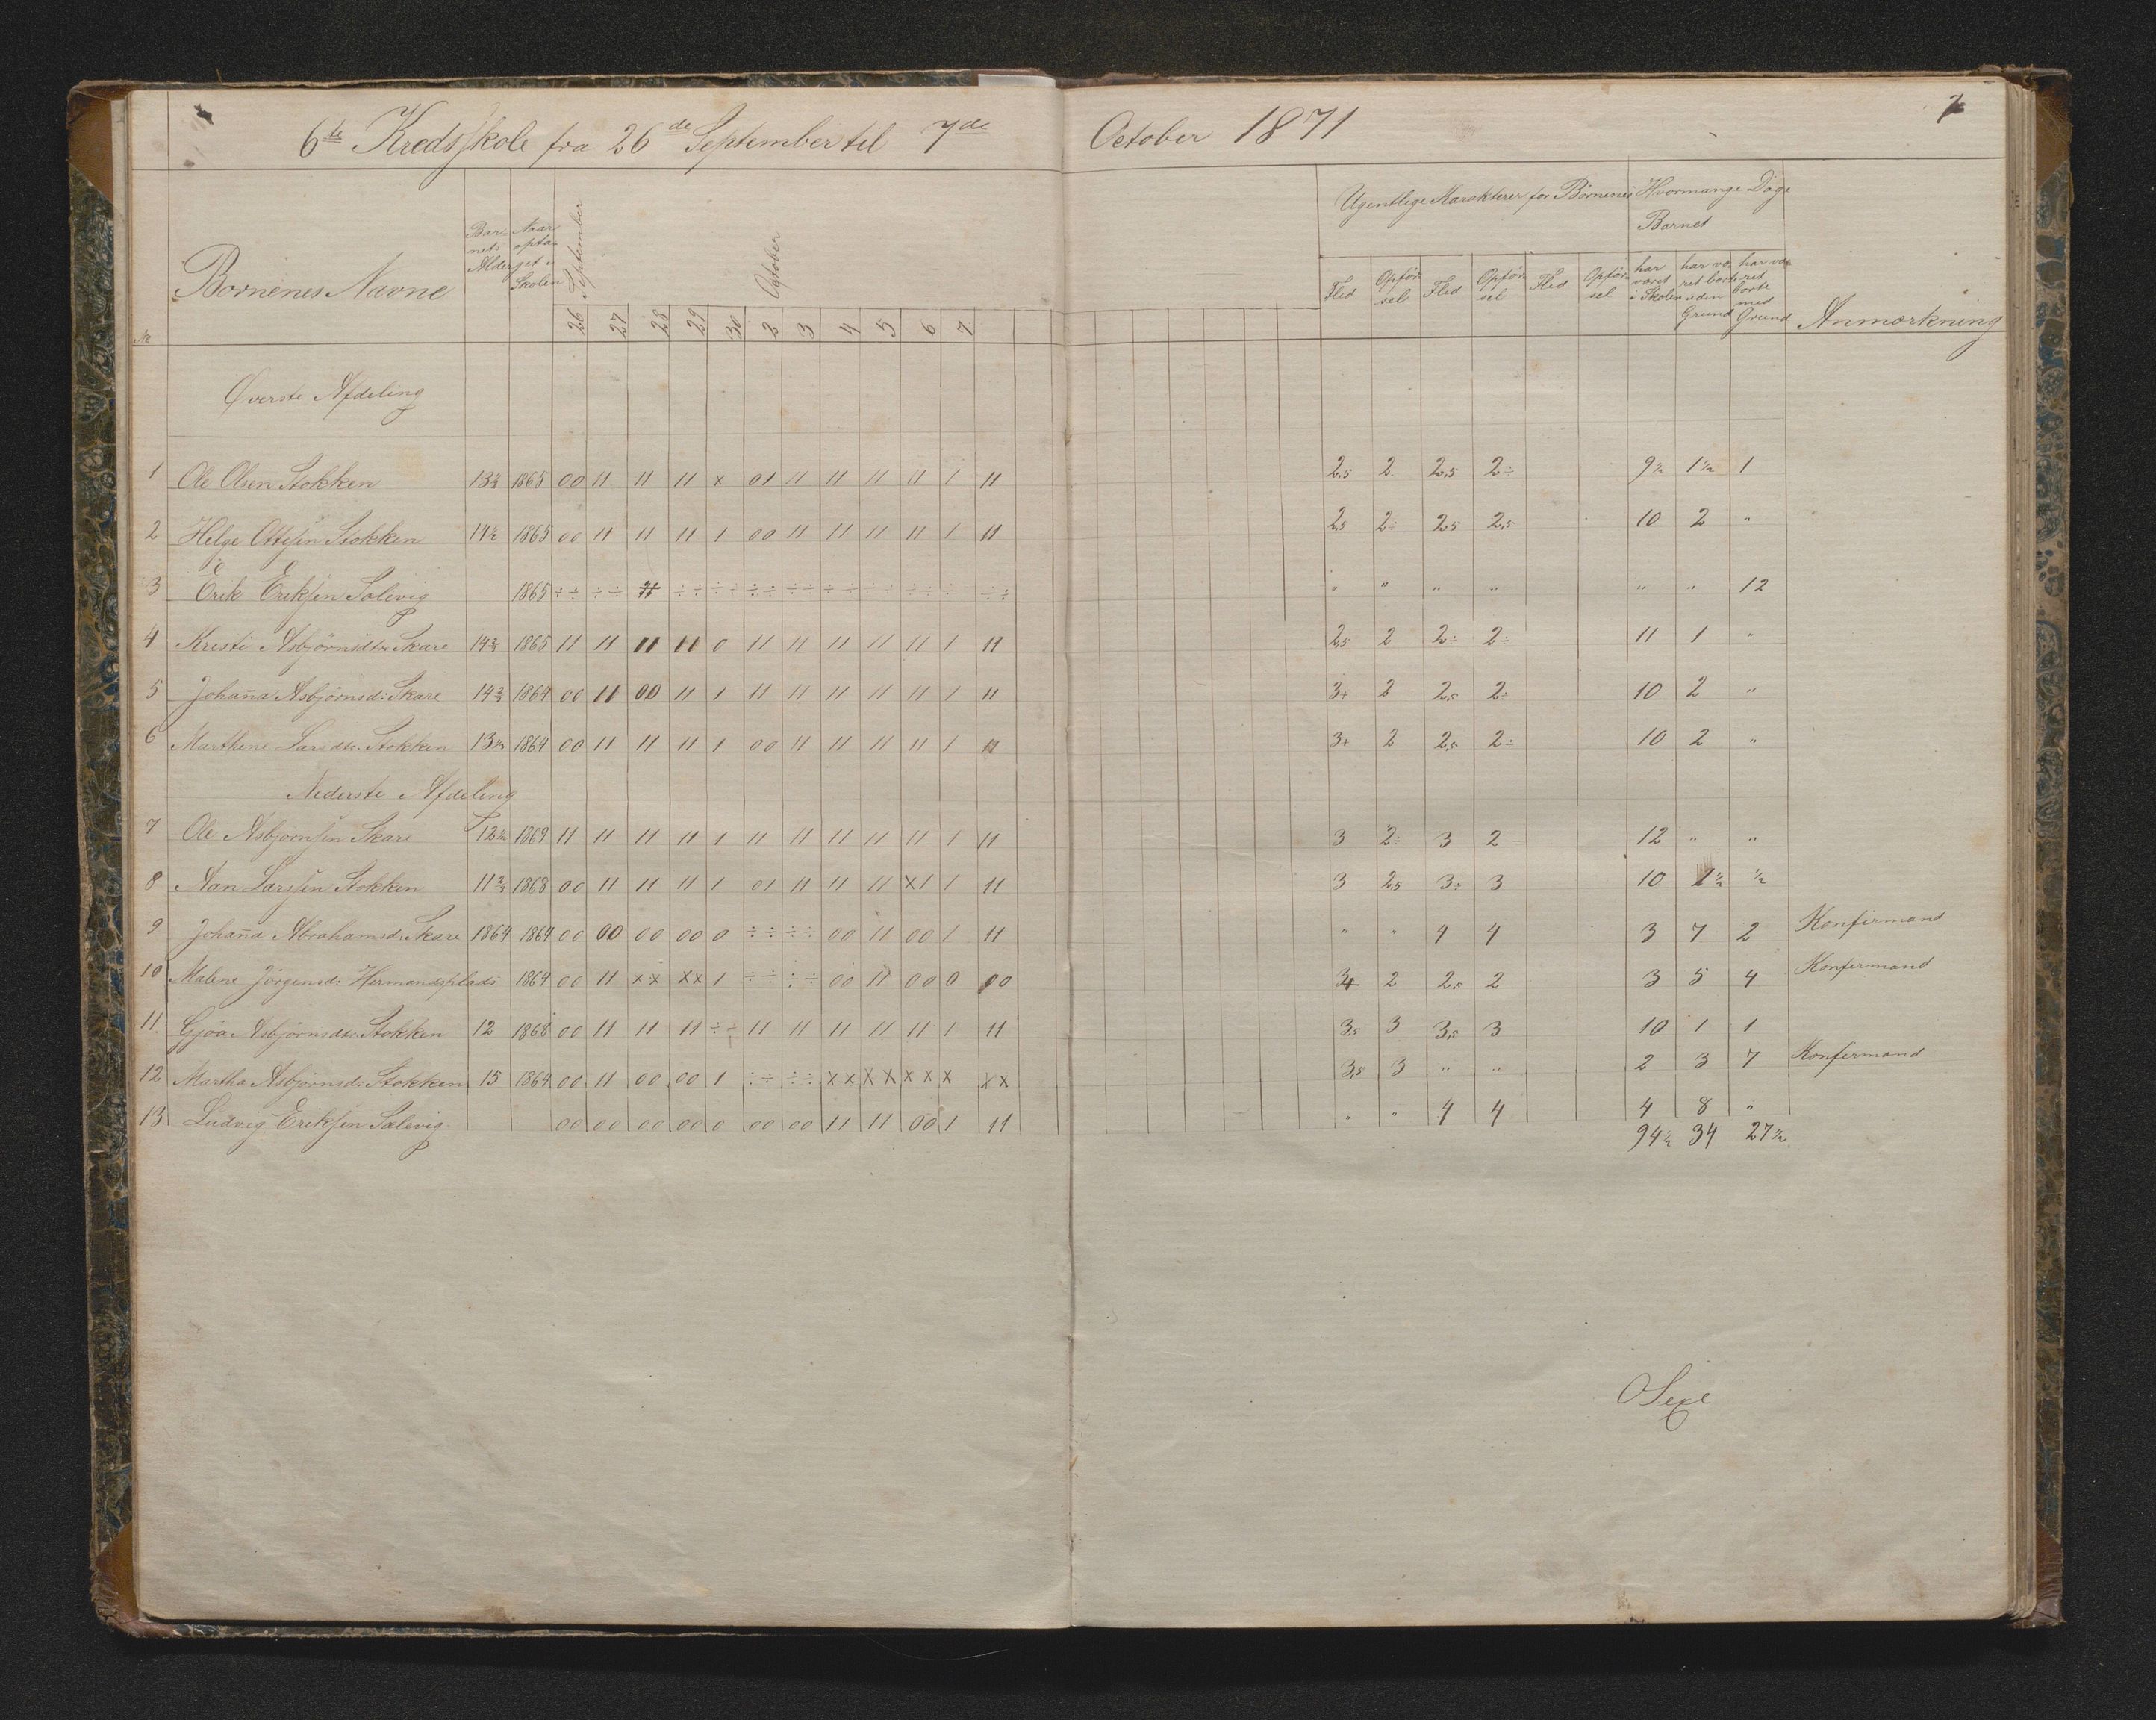 7
6te Kredsskole fra 26de September til 7de October 1871
No Børnenes Navne Barnets Alder Naar optaget i Skolen September October Ugentlige Karakterer for Børnenes Hvormange Dage Barnet
Flid Opførsel Flid Opførsel Flid Opførsel har været i Skolen har været borte uden Grund har været borte med Grund Anmærkning
26 27 28 29 30 2 3 4 5 6 7
Øverste Afdeling
1 Ole Olsen Stokken 13¾ 1865 00 11 11 11 x 01 11 11 11 11 1 11 2,5 2 2,5 2÷ 9½ 1½ 1
2 Helge Ottesen Stokken 14½ 1865 00 11 11 11 1 00 11 11 11 11 1 11 2,5 2÷ 2,5 2,5 10 2 "
3 Erik Eriksen Solevig 1865 ÷÷ ÷÷ ÷÷ ÷÷ ÷÷ ÷÷ ÷÷ ÷÷ ÷÷ ÷÷ ÷÷ " " " " " " 12
4 Kristi Asbjörnsdtr Skare 14¾ 1865 11 11 11 11 0 11 11 11 11 11 1 11 2,5 2 2÷ 2÷ 11 1 "
5 Johan̄a Asbjörnsd: Skare 14¾ 1864 00 11 00 11 1 11 11 11 11 11 1 11 3+ 2 2,5 2÷ 10 2 "
6 Marthene Larsdtr. Stokken 13½ 1864 00 11 11 11 1 00 11 11 11 11 1 11 3+ 2 2,5 2÷ 10 2 "
Nederste Afdeling
7 Ole Asbjornsen Skare 12½ 1869 11 11 11 11 1 11 11 11 11 11 1 11 3 2÷ 3 2 12 " "
8 Aan Larssen Stokken 11¾ 1868 00 11 11 11 1 01 11 11 11 x1 1 11 3 2,5 3÷ 3 10 1½ ½
9 Johan̄a Abrahamsd: Skare 1864 1864 00 00 00 00 0 ÷÷ ÷÷ 00 11 00 1 11 " " 4 4 3 7 2 Konfirmand
10 Malene Jörgensd: Hermandsplads 1864 00 11 xx xx 1 ÷÷ ÷÷ 00 11 00 0 00 3+ 2 2,5 2 3 5 4 Konfirmand
11 Gjöa Asbjörnsdtr. Stokken 12 1868 00 11 11 11 ÷ 11 11 11 11 11 1 11 3,5 3 3,5 3 10 1 1
12 Martha Asbjörnsd: Stokken 15 1864 00 11 00 00 1 ÷÷ ÷÷ xx xx xx x xx 3,5 3 " " 2 3 7 Konfermand
13 Ludvig Eriksen Solevig 00 00 00 00 0 00 00 11 11 00 1 11 " " 4 4 4 8 "
94½ 34 27½
O Sexe